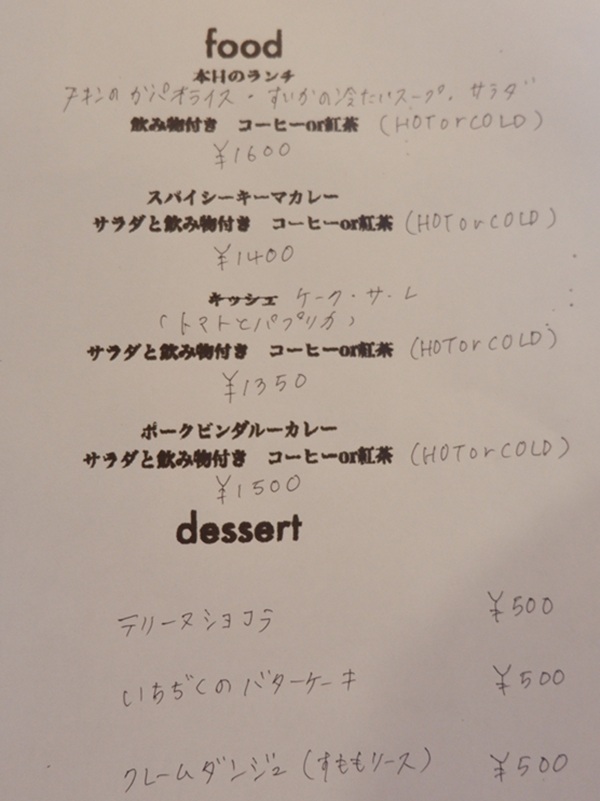 food
本日のランチ
チキンのガパオライス・すいかの冷たいスープ、サラダ
飲み物付き コーヒーor紅茶 (HOTorCOLD)
¥1600
スパイシーキーマカレー
サラダと飲み物付き コーヒーor紅茶 (HOTorCOLD)
¥1400
キッシュ ケーク・サ・レ
(トマトとパプリカ)
サラダと飲み物付き コーヒーor紅茶 (HOTorCOLD)
¥1350
ポークビンダルーカレー
サラダと飲み物付き コーヒーor紅茶 (HOTorCOLD)
¥1500
dessert
テリーヌショコラ ¥500
いちぢくのバターケーキ ¥500
クレームダンジュ(すももソース) ¥500